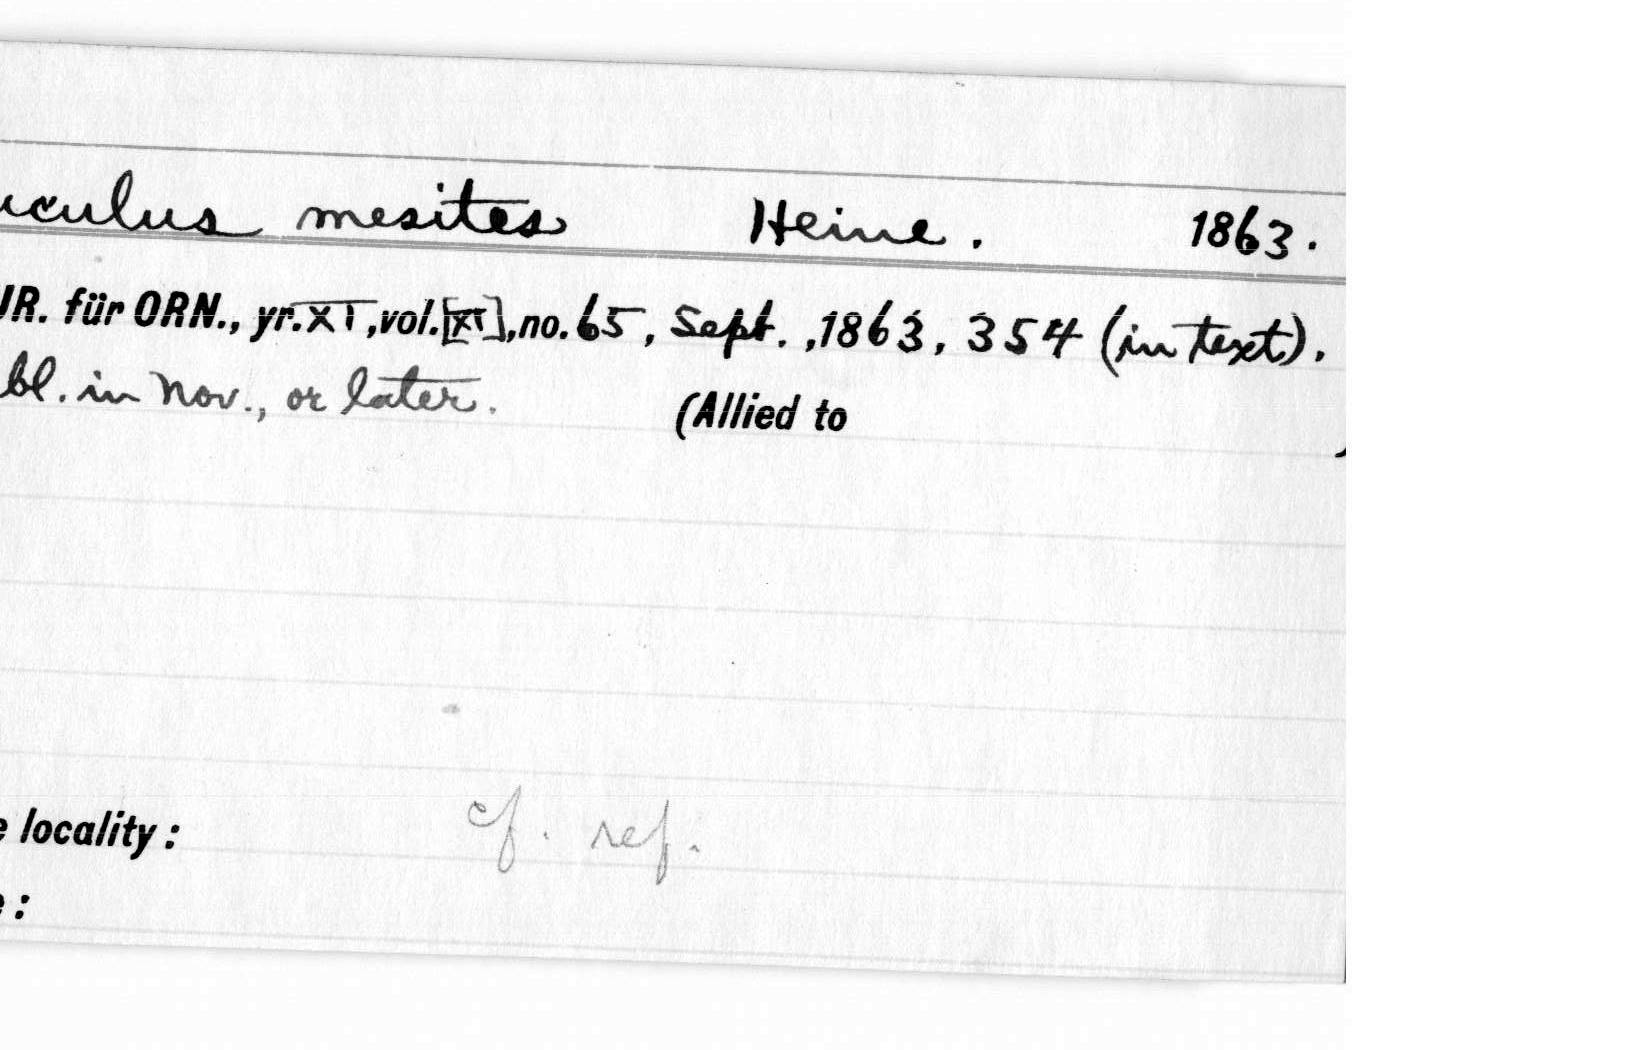 uculus mesites Heine. 1863.
UR. für ORN., yr. XI, vol. [XI], no. 65, Sept., 1863, 354 (in text).
bl. in Nov., or later. (Allied to )
e locality: cf. ref.
e: